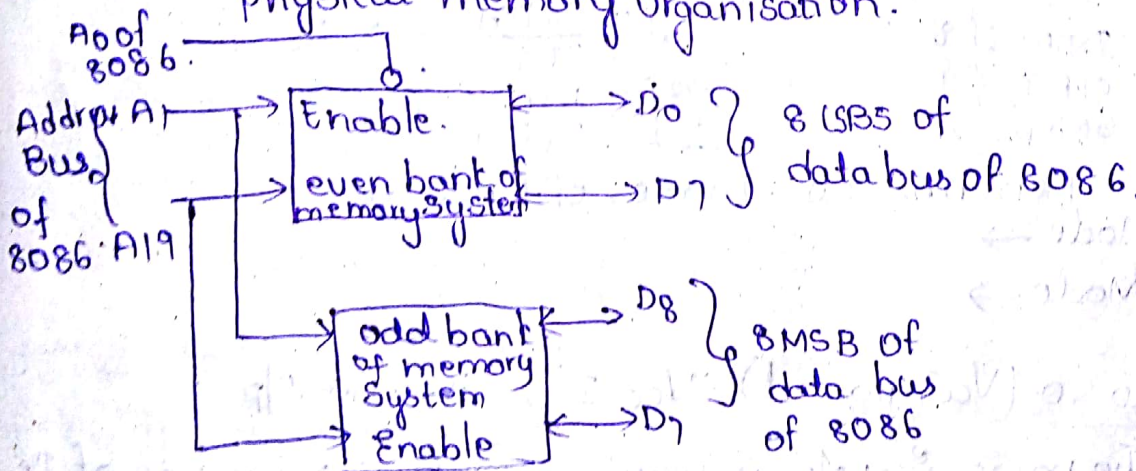 Physical memory Organisation.
A0 of
8086.
Address A1
Bus
of
8086. A19
Enable.
even bank of
memory system
D0
D7
8 LSBs of
data bus of 8086
odd bank
of memory
system
Enable
D8
D7
8 MSB of
data bus
of 8086